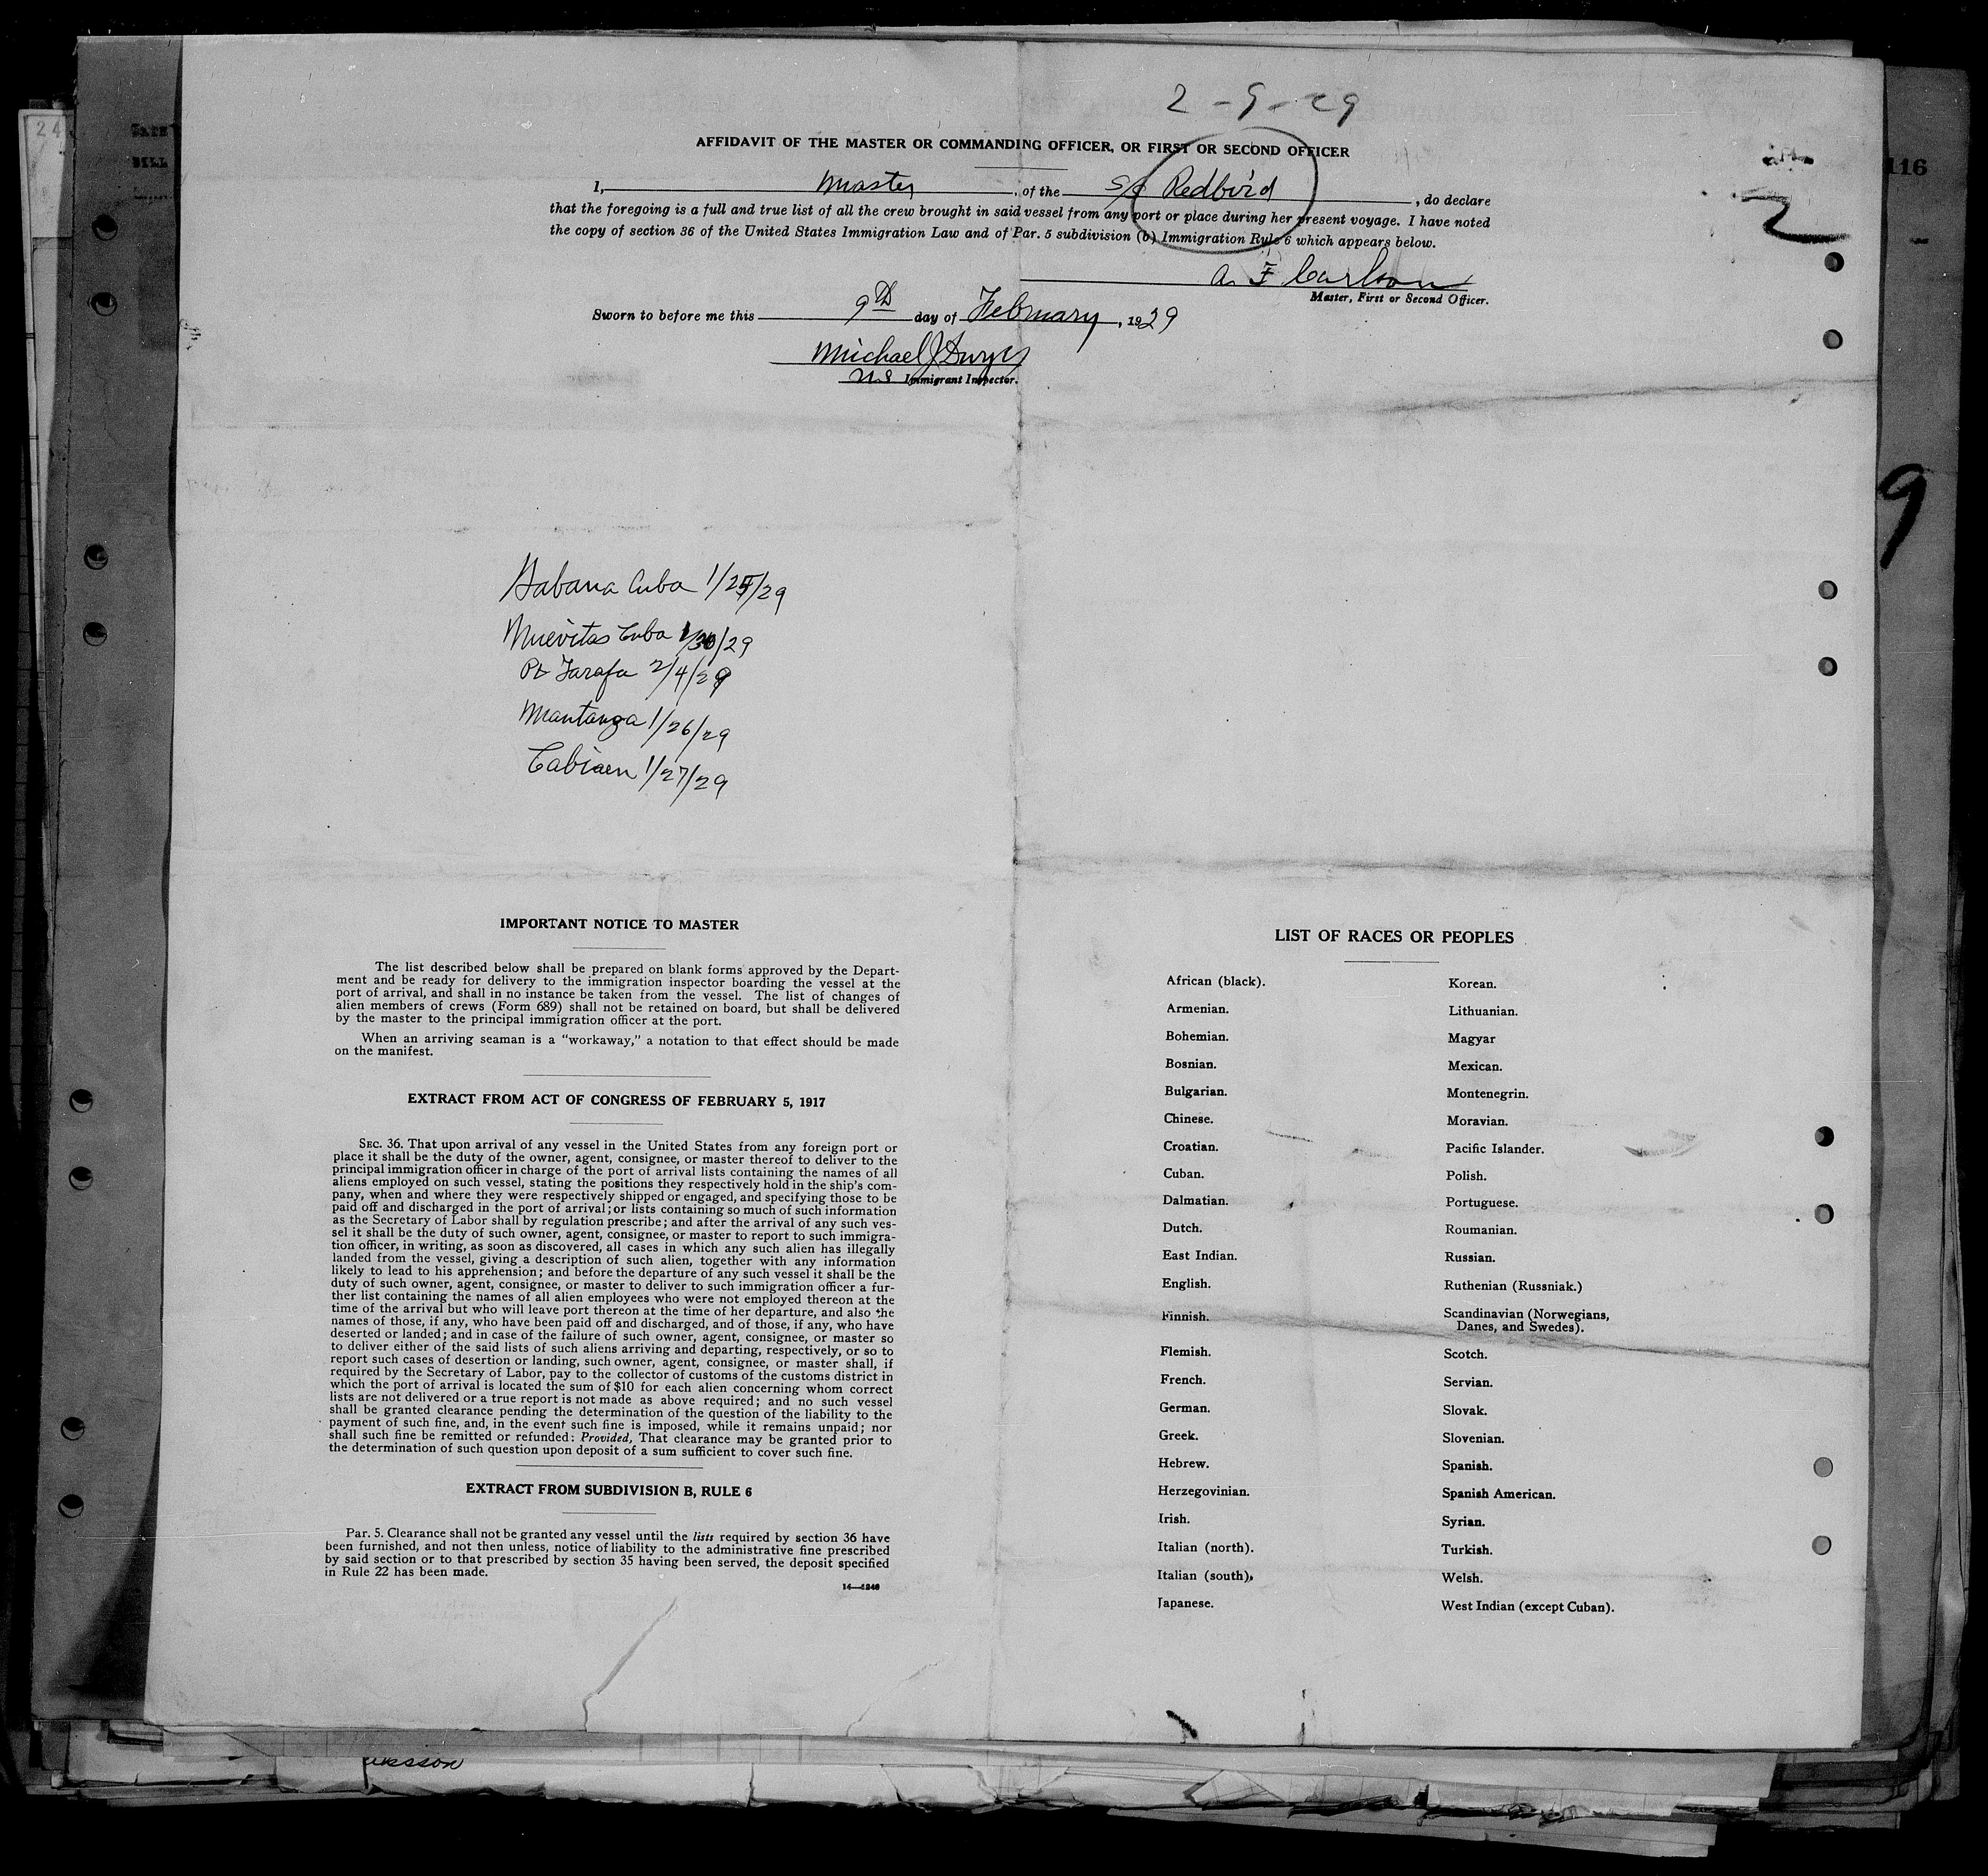 2-9-29
AFFIDAVIT OF THE MASTER OR COMMANDING OFFICER, OR FIRST OR SECOND OFFICER
I, Master, of the S/S Redbird, do declare
that the foregoing is a full and true list of all the crew brought in said vessel from any port or place during her present voyage. I have noted
the copy of section 36 of the United States Immigration Law and of Par. 5 subdivision (b) Immigration Rule 6 which appears below.
A. F Carlson
Master, First or Second Officer.
Sworn to before me this 9th day of February, 1929
Michael J
U.S Immigrant Inspector.
24
116
2
9
Habana Cuba 1/25/29
Nuevitas Cuba 1/30/29
Pt Tarafa 2/4/29
Mantanza 1/26/29
Cabiaen 1/27/29
IMPORTANT NOTICE TO MASTER
The list described below shall be prepared on blank forms approved by the Depart-
ment and be ready for delivery to the immigration inspector boarding the vessel at the
port of arrival, and shall in no instance be taken from the vessel. The list of changes of
alien members of crews (Form 689) shall not be retained on board, but shall be delivered
by the master to the principal immigration officer at the port.
When an arriving seaman is a "workaway," a notation to that effect should be made
on the manifest.
EXTRACT FROM ACT OF CONGRESS OF FEBRUARY 5, 1917
SEC. 36. That upon arrival of any vessel in the United States from any foreign port or
place it shall be the duty of the owner, agent, consignee, or master thereof to deliver to the
principal immigration officer in charge of the port of arrival lists containing the names of all
aliens employed on such vessel, stating the positions they respectively hold in the ship's com-
pany, when and where they were respectively shipped or engaged, and specifying those to be
paid off and discharged in the port of arrival; or lists containing so much of such information
as the Secretary of Labor shall by regulation prescribe; and after the arrival of any such ves-
sel it shall be the duty of such owner, agent, consignee, or master to report to such immigra-
tion officer, in writing, as soon as discovered, all cases in which any such alien has illegally
landed from the vessel, giving a description of such alien, together with any information
likely to lead to his apprehension; and before the departure of any such vessel it shall be the
duty of such owner, agent, consignee, or master to deliver to such immigration officer a fur-
ther list containing the names of all alien employees who were not employed thereon at the
time of the arrival but who will leave port thereon at the time of her departure, and also the
names of those, if any, who have been paid off and discharged, and of those, if any, who have
deserted or landed; and in case of the failure of such owner, agent, consignee, or master so
to deliver either of the said lists of such aliens arriving and departing, respectively, or so to
report such cases of desertion or landing, such owner, agent, consignee, or master shall, if
required by the Secretary of Labor, pay to the collector of customs of the customs district in
which the port of arrival is located the sum of $10 for each alien concerning whom correct
lists are not delivered or a true report is not made as above required; and no such vessel
shall be granted clearance pending the determination of the question of the liability to the
payment of such fine, and, in the event such fine is imposed, while it remains unpaid; nor
shall such fine be remitted or refunded: Provided, That clearance may be granted prior to
the determination of such question upon deposit of a sum sufficient to cover such fine.
EXTRACT FROM SUBDIVISION B, RULE 6
Par. 5. Clearance shall not be granted any vessel until the lists required by section 36 have
been furnished, and not then unless, notice of liability to the administrative fine prescribed
by said section or to that prescribed by section 35 having been served, the deposit specified
in Rule 22 has been made.
LIST OF RACES OR PEOPLES
African (black).
Armenian.
Bohemian.
Bosnian.
Bulgarian.
Chinese.
Croatian.
Cuban.
Dalmatian.
Dutch.
East Indian.
English.
Finnish.
Flemish.
French.
German.
Greek.
Hebrew.
Herzegovinian.
Irish.
Italian (north).
Italian (south).
Japanese.
Korean.
Lithuanian.
Magyar
Mexican.
Montenegrin.
Moravian.
Pacific Islander.
Polish.
Portuguese.
Roumanian.
Russian.
Ruthenian (Russniak.)
Scandinavian (Norwegians,
Danes, and Swedes).
Scotch.
Servian.
Slovak.
Slovenian.
Spanish.
Spanish American.
Syrian.
Turkish.
Welsh.
West Indian (except Cuban).